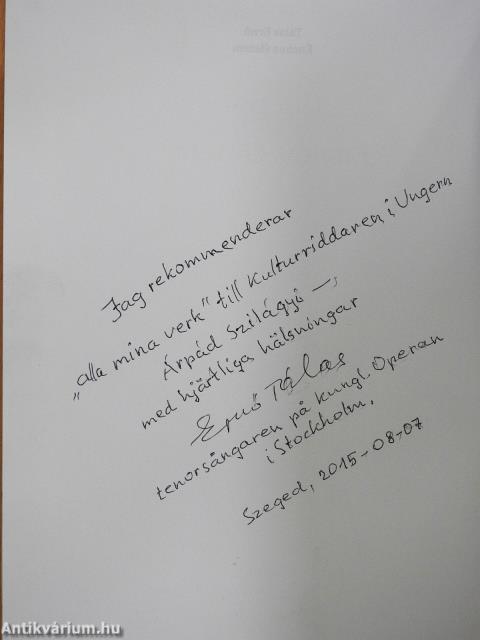 Jag rekommenderar
„alla mina verk" till Kulturriddaren i Ungern
Árpád Szilágyi —,
med hjärtliga hälsningar
Ernő Tálas
tenorsångaren på Kungl. Operan
i Stockholm,
Szeged, 2015-08-07
Antikvárium.hu